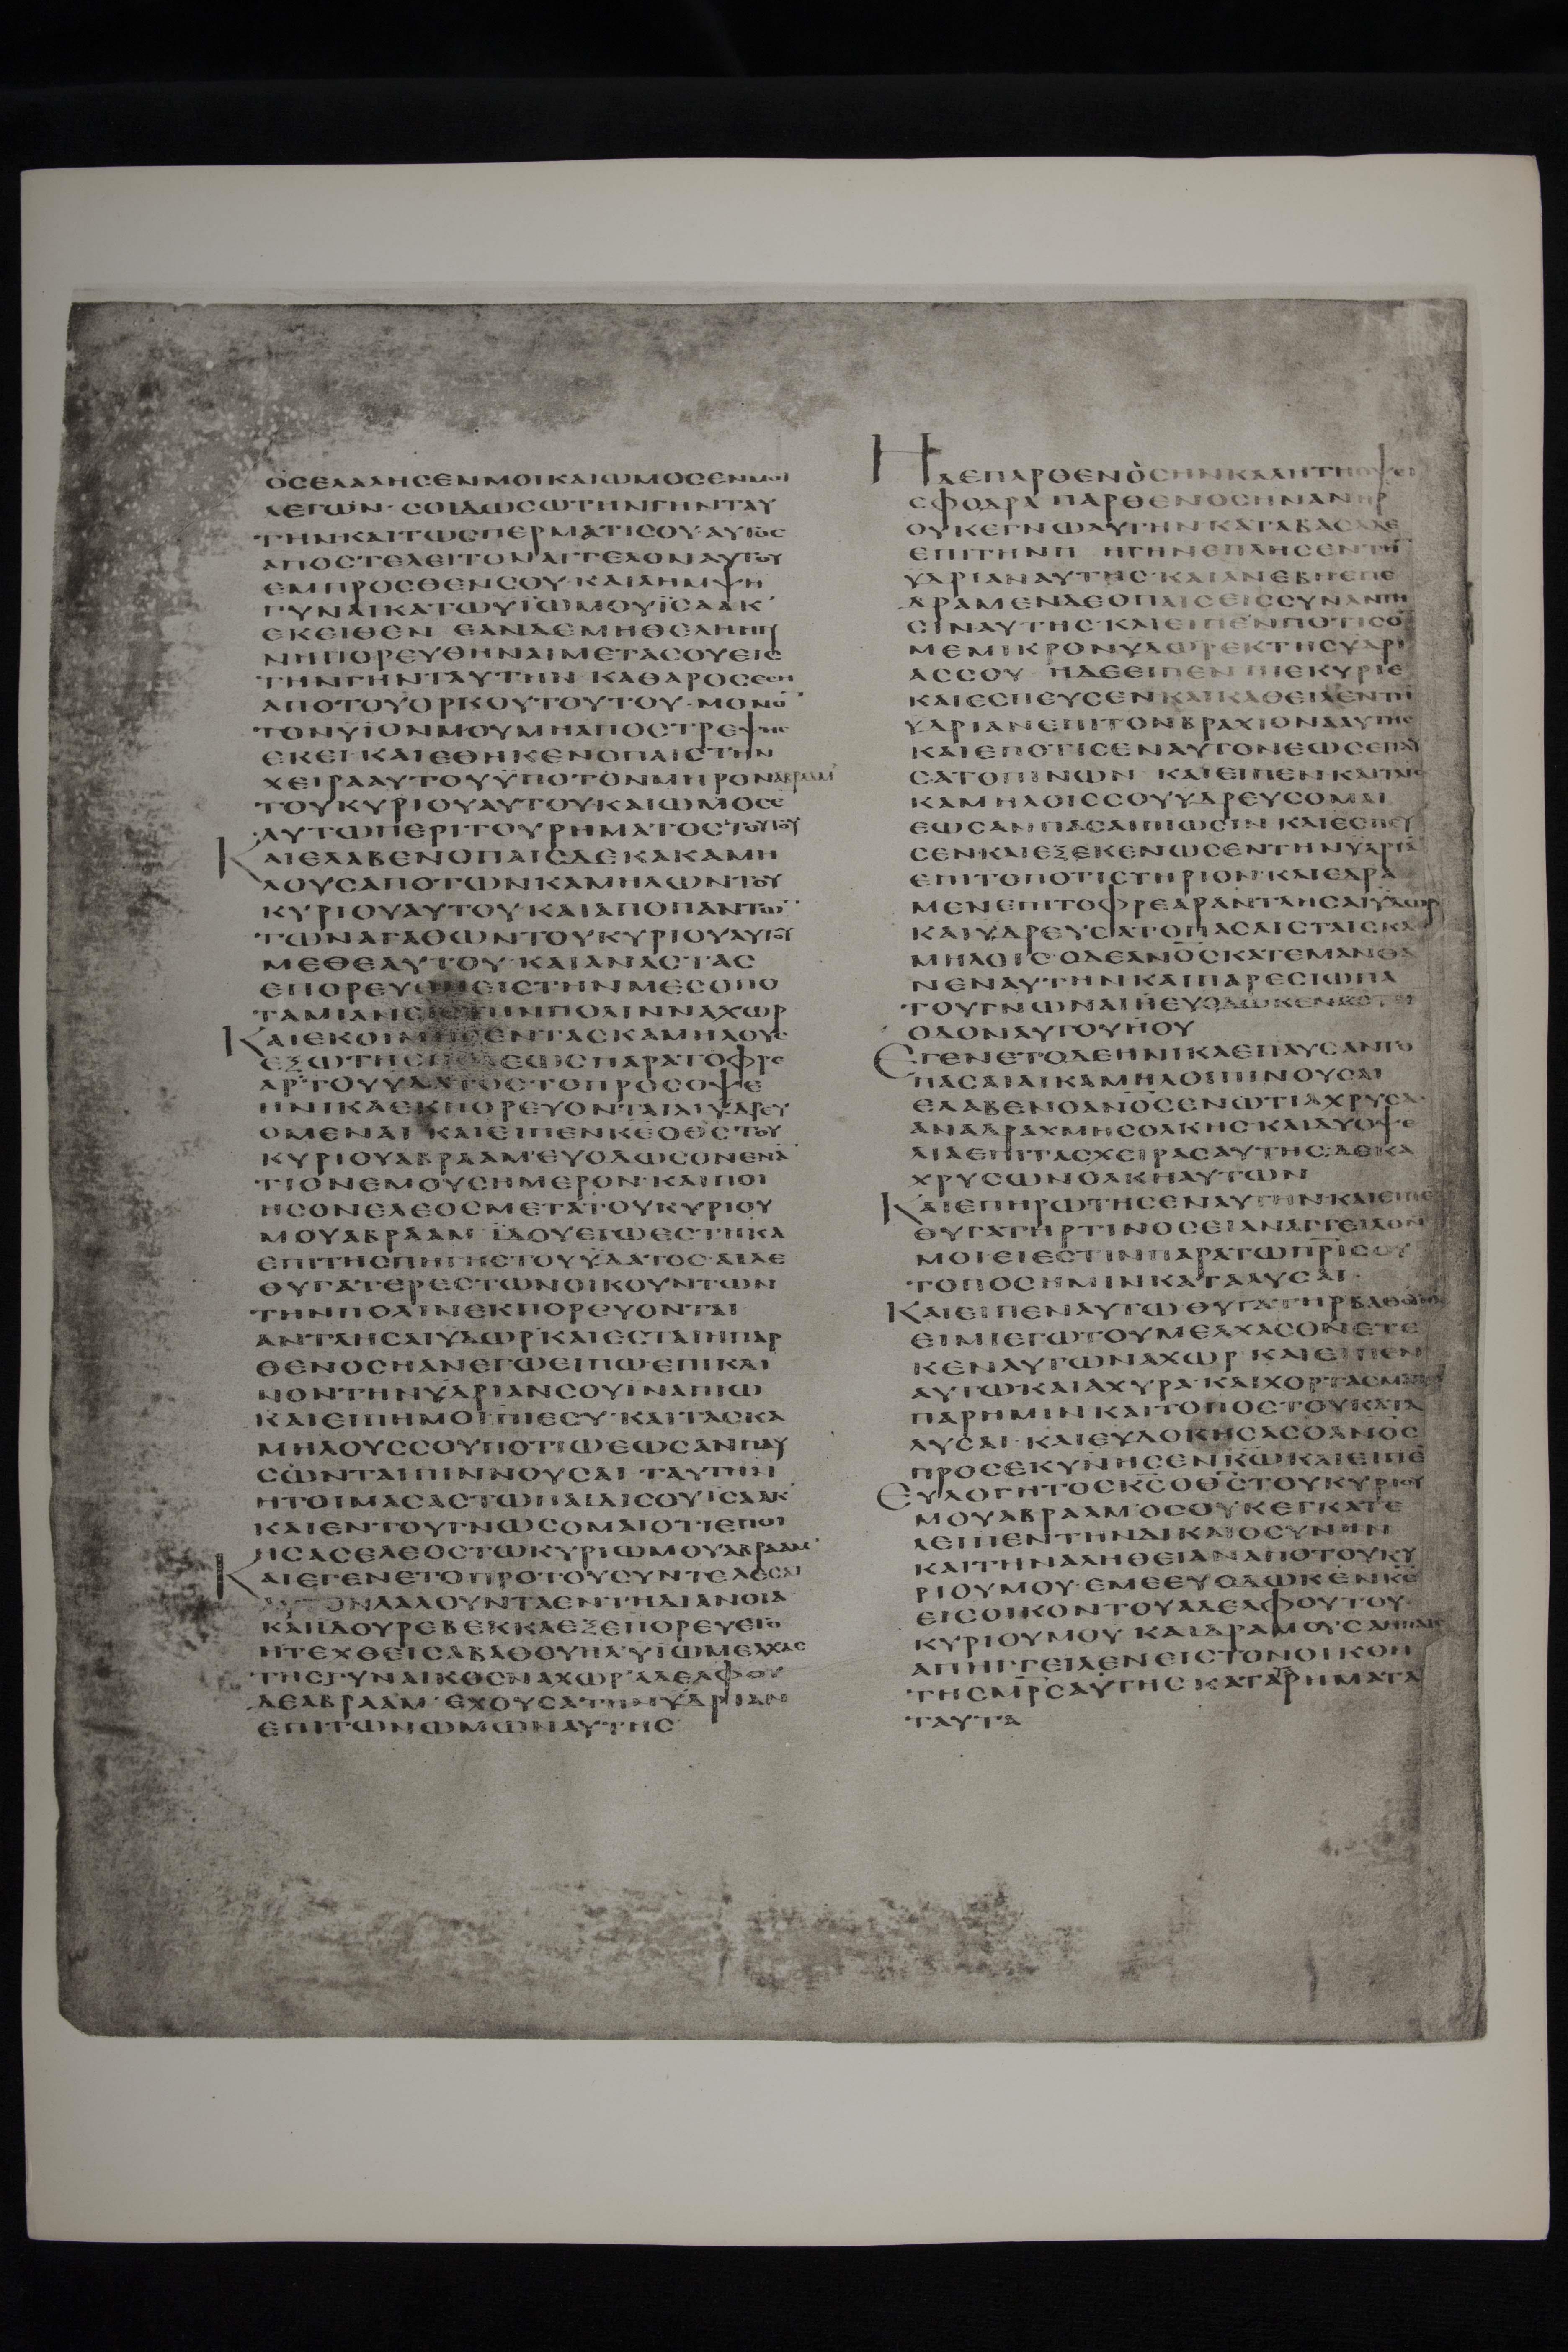 ΟΣΕΛΑΛΗΣΕΝΜΟΙΚΑΙΩΜΟΣΕΝΜΟΙ
ΛΕΓΩΝ· ΣΟΙΔΩΣΩΤΗΝΓΗΝΤΑΥ
ΤΗΝ·ΚΑΙΤΩΣΠΕΡΜΑΤΙΣΟΥ·ΑΥΤΟΣ
ΑΠΟΣΤΕΛΕΙΤΟΝΑΓΓΕΛΟΝΑΥΤΟΥ
ΕΜΠΡΟΣΘΕΝΣΟΥ·ΚΑΙΛΗΜΨΗ
ΓΥΝΑΙΚΑΤΩΥΪΩΜΟΥΪΣΑΑΚ
ΕΚΕΙΘΕΝ ΕΑΝΔΕΜΗΘΕΛΗΗΓΥ
ΝΗΠΟΡΕΥΘΗΝΑΙΜΕΤΑΣΟΥΕΙΣ
ΤΗΝΓΗΝΤΑΥΤΗΝ ΚΑΘΑΡΟΣΕΣΗ
ΑΠΟΤΟΥΟΡΚΟΥΤΟΥΤΟΥ·ΜΟΝΟ̄
ΤΟΝΥΪΟΝΜΟΥΜΗΑΠΟΣΤΡΕΨΗΣ
ΕΚΕΙ·ΚΑΙΕΘΗΚΕΝΟΠΑΙΣΤΗΝ
ΧΕΙΡΑΑΥΤΟΥΫΠΟΤΟΝΜΗΡΟΝΑΒΡΑΑΜ
ΤΟΥΚΥΡΙΟΥΑΥΤΟΥΚΑΙΩΜΟΣΕ
ΑΥΤΩΠΕΡΙΤΟΥΡΗΜΑΤΟΣΤΟΥΤΟΥ
ΚΑΙΕΛΑΒΕΝΟΠΑΙΣΔΕΚΑΚΑΜΗ
ΛΟΥΣΑΠΟΤΩΝΚΑΜΗΛΩΝΤΟΥ
ΚΥΡΙΟΥΑΥΤΟΥ·ΚΑΙΑΠΟΠΑΝΤΩ̄
ΤΩΝΑΓΑΘΩΝΤΟΥΚΥΡΙΟΥΑΥΤΟΥ
ΜΕΘΕΑΥΤΟΥ·ΚΑΙΑΝΑΣΤΑΣ
ΕΠΟΡΕΥΘΗΕΙΣΤΗΝΜΕΣΟΠΟ
ΤΑΜΙΑΝΕΙΣΤΗΝΠΟΛΙΝΝΑΧΩΡ
ΚΑΙΕΚΟΙΜΗΣΕΝΤΑΣΚΑΜΗΛΟΥΣ
ΕΞΩΤΗΣΠΟΛΕΩΣΠΑΡΑΤΟΦΡΕ
ΑΡΤΟΥΥΔΑΤΟΣΤΟΠΡΟΣΟΨΕ
ΗΝΙΚΑΕΚΠΟΡΕΥΟΝΤΑΙΑΙΥΔΡΕΥ
ΟΜΕΝΑΙ ΚΑΙΕΙΠΕΝΚ̄Ε̄ΟΘ̄Σ̄ΤΟΥ
ΚΥΡΙΟΥΑΒΡΑΑΜ·ΕΥΟΔΩΣΟΝΕΝᾹ
ΤΙΟΝΕΜΟΥΣΗΜΕΡΟΝ·ΚΑΙΠΟΙ
ΗΣΟΝΕΛΕΟΣΜΕΤΑΤΟΥΚΥΡΙΟΥ
ΜΟΥΑΒΡΑΑΜ ΪΔΟΥΕΓΩΕΣΤΗΚΑ
ΕΠΙΤΗΣΠΗΓΗΣΤΟΥΫΔΑΤΟΣ·ΑΙΔΕ
ΘΥΓΑΤΕΡΕΣΤΩΝΟΙΚΟΥΝΤΩΝ
ΤΗΝΠΟΛΙΝΕΚΠΟΡΕΥΟΝΤΑΙ
ΑΝΤΛΗΣΑΙΥΔΩΡ·ΚΑΙΕΣΤΑΙΗΠΑΡ
ΘΕΝΟΣΗΑΝΕΓΩΕΙΠΩ·ΕΠΙΚΛΙ
ΝΟΝΤΗΝΥΔΡΙΑΝΣΟΥΙΝΑΠΙΩ
ΚΑΙΕΙΠΗΜΟΙΠΙΕΣΥ·ΚΑΙΤΑΣΚΑ
ΜΗΛΟΥΣΣΟΥΠΟΤΙΩΕΩΣΑΝΠΑΥ
ΣΩΝΤΑΙΠΙΝΝΟΥΣΑΙ ΤΑΥΤΗΝ
ΗΤΟΙΜΑΣΑΣΤΩΠΑΙΔΙΣΟΥΙΣΑΑΚ
ΚΑΙΕΝΤΟΥΓΝΩΣΟΜΑΙΟΤΙΕΠΟΙ
ΗΣΑΣΕΛΕΟΣΤΩΚΥΡΙΩΜΟΥΑΒΡΑΑΜ
ΚΑΙΕΓΕΝΕΤΟΠΡΟΤΟΥΣΥΝΤΕΛΕΣΑΙ
ΑΥΤΟΝΛΑΛΟΥΝΤΑΕΝΤΗΔΙΑΝΟΙΑ
ΚΑΙΪΔΟΥΡΕΒΕΚΚΑΕΞΕΠΟΡΕΥΕΤΟ
ΗΤΕΧΘΕΙΣΑΒΑΘΟΥΗΛ·ΥΪΩΜΕΛΧΑΣ
ΤΗΣΓΥΝΑΙΚΟΣΝΑΧΩΡ·ΑΔΕΛΦΟΥ
ΔΕΑΒΡΑΑΜ·ΕΧΟΥΣΑΤΗΝΥΔΡΙΑΝ
ΕΠΙΤΩΝΩΜΩΝΑΥΤΗΣ
ΗΔΕΠΑΡΘΕΝΟΣΗΝΚΑΛΗΤΗΟΨΕΙ
ΣΦΟΔΡΑ ΠΑΡΘΕΝΟΣΗΝΑΝΗΡ
ΟΥΚΕΓΝΩΑΥΤΗΝ·ΚΑΤΑΒΑΣΑΔΕ
ΕΠΙΤΗΝΠ ΗΓΗΝΕΠΛΗΣΕΝΤΗ̄
ΥΔΡΙΑΝΑΥΤΗΣ·ΚΑΙΑΝΕΒΗΕΠΕ
ΔΡΑΜΕΝΔΕΟΠΑΙΣΕΙΣΣΥΝΑΝΤΗ
ΣΙΝΑΥΤΗΣ·ΚΑΙΕΙΠΕΝΠΟΤΙΣΟ̄
ΜΕΜΙΚΡΟΝΥΔΩΡΕΚΤΗΣΥΔΡΙ
ΑΣΣΟΥ ΗΔΕΕΙΠΕΝ ΠΙΕΚΥΡΙΕ
ΚΑΙΕΣΠΕΥΣΕΝΚΑΙΚΑΘΕΙΛΕΝΤΗ̄
ΥΔΡΙΑΝΕΠΙΤΟΝΒΡΑΧΙΟΝΑΑΥΤΗΣ
ΚΑΙΕΠΟΤΙΣΕΝΑΥΤΟΝΕΩΣΕΠΑΥ
ΣΑΤΟΠΙΝΩΝ ΚΑΙΕΙΠΕΝΚΑΙΤΑΙΣ
ΚΑΜΗΛΟΙΣΣΟΥΥΔΡΕΥΣΟΜΑΙ
ΕΩΣΑΝΠΑΣΑΙΠΙΩΣΙΝ ΚΑΙΕΣΠΕΥ
ΣΕΝΚΑΙΕΞΕΚΕΝΩΣΕΝΤΗΝΥΔΡΙᾹ
ΕΠΙΤΟΠΟΤΙΣΤΗΡΙΟΝ·ΚΑΙΕΔΡΑ
ΜΕΝΕΠΙΤΟΦΡΕΑΡΑΝΤΛΗΣΑΙΥΔΩΡ
ΚΑΙΥΔΡΕΥΣΑΤΟΠΑΣΑΙΣΤΑΙΣΚΑ
ΜΗΛΟΙΣ·ΟΔΕΑΝ̄Ο̄Σ̄ΚΑΤΕΜΑΝΘΑ
ΝΕΝΑΥΤΗΝΚΑΙΠΑΡΕΣΙΩΠΑ
ΤΟΥΓΝΩΝΑΙΗΕΥΟΔΩΚΕΝΚ̄Σ̄ΤΗ̄
ΟΔΟΝΑΥΤΟΥΗΟΥ
ΕΓΕΝΕΤΟΔΕΗΝΙΚΑΕΠΑΥΣΑΝΤΟ
ΠΑΣΑΙΑΙΚΑΜΗΛΟΙΠΙΝΟΥΣΑΙ
ΕΛΑΒΕΝΟΑΝ̄Ο̄Σ̄ΕΝΩΤΙΑΧΡΥΣΑ
ΑΝΑΔΡΑΧΜΗΣΟΛΚΗΣ·ΚΑΙΔΥΟΨΕ
ΛΙΑΕΠΙΤΑΣΧΕΙΡΑΣΑΥΤΗΣ·ΔΕΚΑ
ΧΡΥΣΩΝΟΛΚΗΑΥΤΩΝ
ΚΑΙΕΠΗΡΩΤΗΣΕΝΑΥΤΗΝ·ΚΑΙΕΙΠΕ
ΘΥΓΑΤΗΡΤΙΝΟΣΕΙΑΝΑΓΓΕΙΛΟΝ
ΜΟΙΕΙΕΣΤΙΝΠΑΡΑΤΩΠ̄Ρ̄ῙΣΟΥ
ΤΟΠΟΣΗΜΙΝΚΑΤΑΛΥΣΑΙ
ΚΑΙΕΙΠΕΝΑΥΤΩ·ΘΥΓΑΤΗΡΒΑΘΟΥΗΛ
ΕΙΜΙΕΓΩΤΟΥΜΕΛΧΑΣΟΝΕΤΕ
ΚΕΝΑΥΤΩΝΑΧΩΡ ΚΑΙΕΙΠΕΝ
ΑΥΤΩΚΑΙΑΧΥΡΑ·ΚΑΙΧΟΡΤΑΣΜΑΤΑ
ΠΑΡΗΜΙΝ·ΚΑΙΤΟΠΟΣΤΟΥΚΑΤΑ
ΛΥΣΑΙ·ΚΑΙΕΥΔΟΚΗΣΑΣΟΑΝ̄Ο̄Σ̄
ΠΡΟΣΕΚΥΝΗΣΕΝΚ̄Ω̄ΚΑΙΕΙΠΕ̄
ΕΥΛΟΓΗΤΟΣΚ̄Σ̄ΟΘ̄Σ̄ΤΟΥΚΥΡΙΟΥ
ΜΟΥΑΒΡΑΑΜ·ΟΣΟΥΚΕΓΚΑΤΕ
ΛΕΙΠΕΝΤΗΝΔΙΚΑΙΟΣΥΝΗΝ
ΚΑΙΤΗΝΑΛΗΘΕΙΑΝΑΠΟΤΟΥΚΥ
ΡΙΟΥΜΟΥ·ΕΜΕΕΥΟΔΩΚΕΝΚ̄Σ̄
ΕΙΣΟΙΚΟΝΤΟΥΑΔΕΛΦΟΥΤΟΥ
ΚΥΡΙΟΥΜΟΥ ΚΑΙΔΡΑΜΟΥΣΑΗΠΑΙΣ
ΑΠΗΓΓΕΙΛΕΝΕΙΣΤΟΝΟΙΚΟΝ
ΤΗΣΜ̄Ρ̄Σ̄ΑΥΤΗΣΚΑΤΑΤΑΡΗΜΑΤΑ
ΤΑΥΤΑ